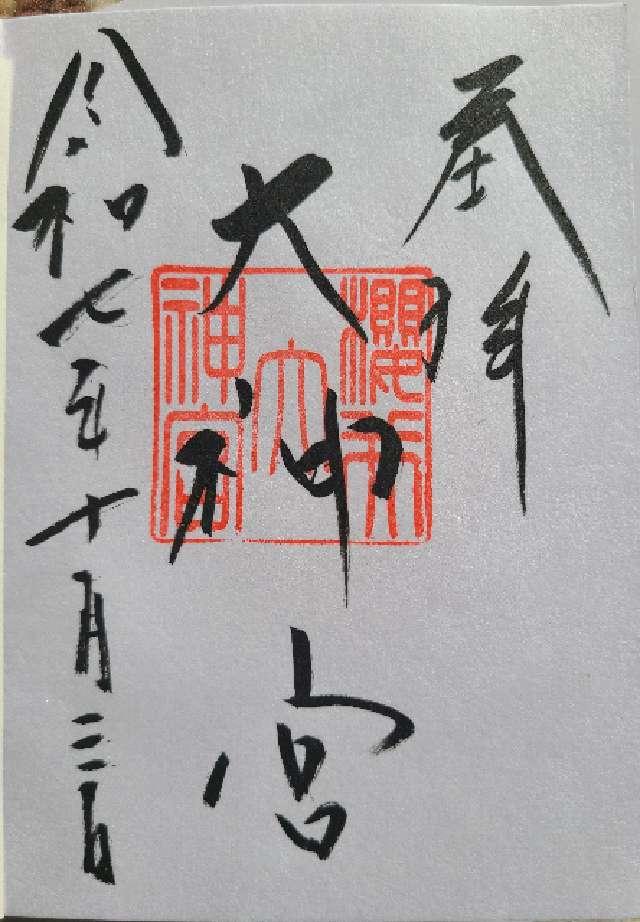 奉拝
大神宮
令和七年十月三日
櫻
大
神宮